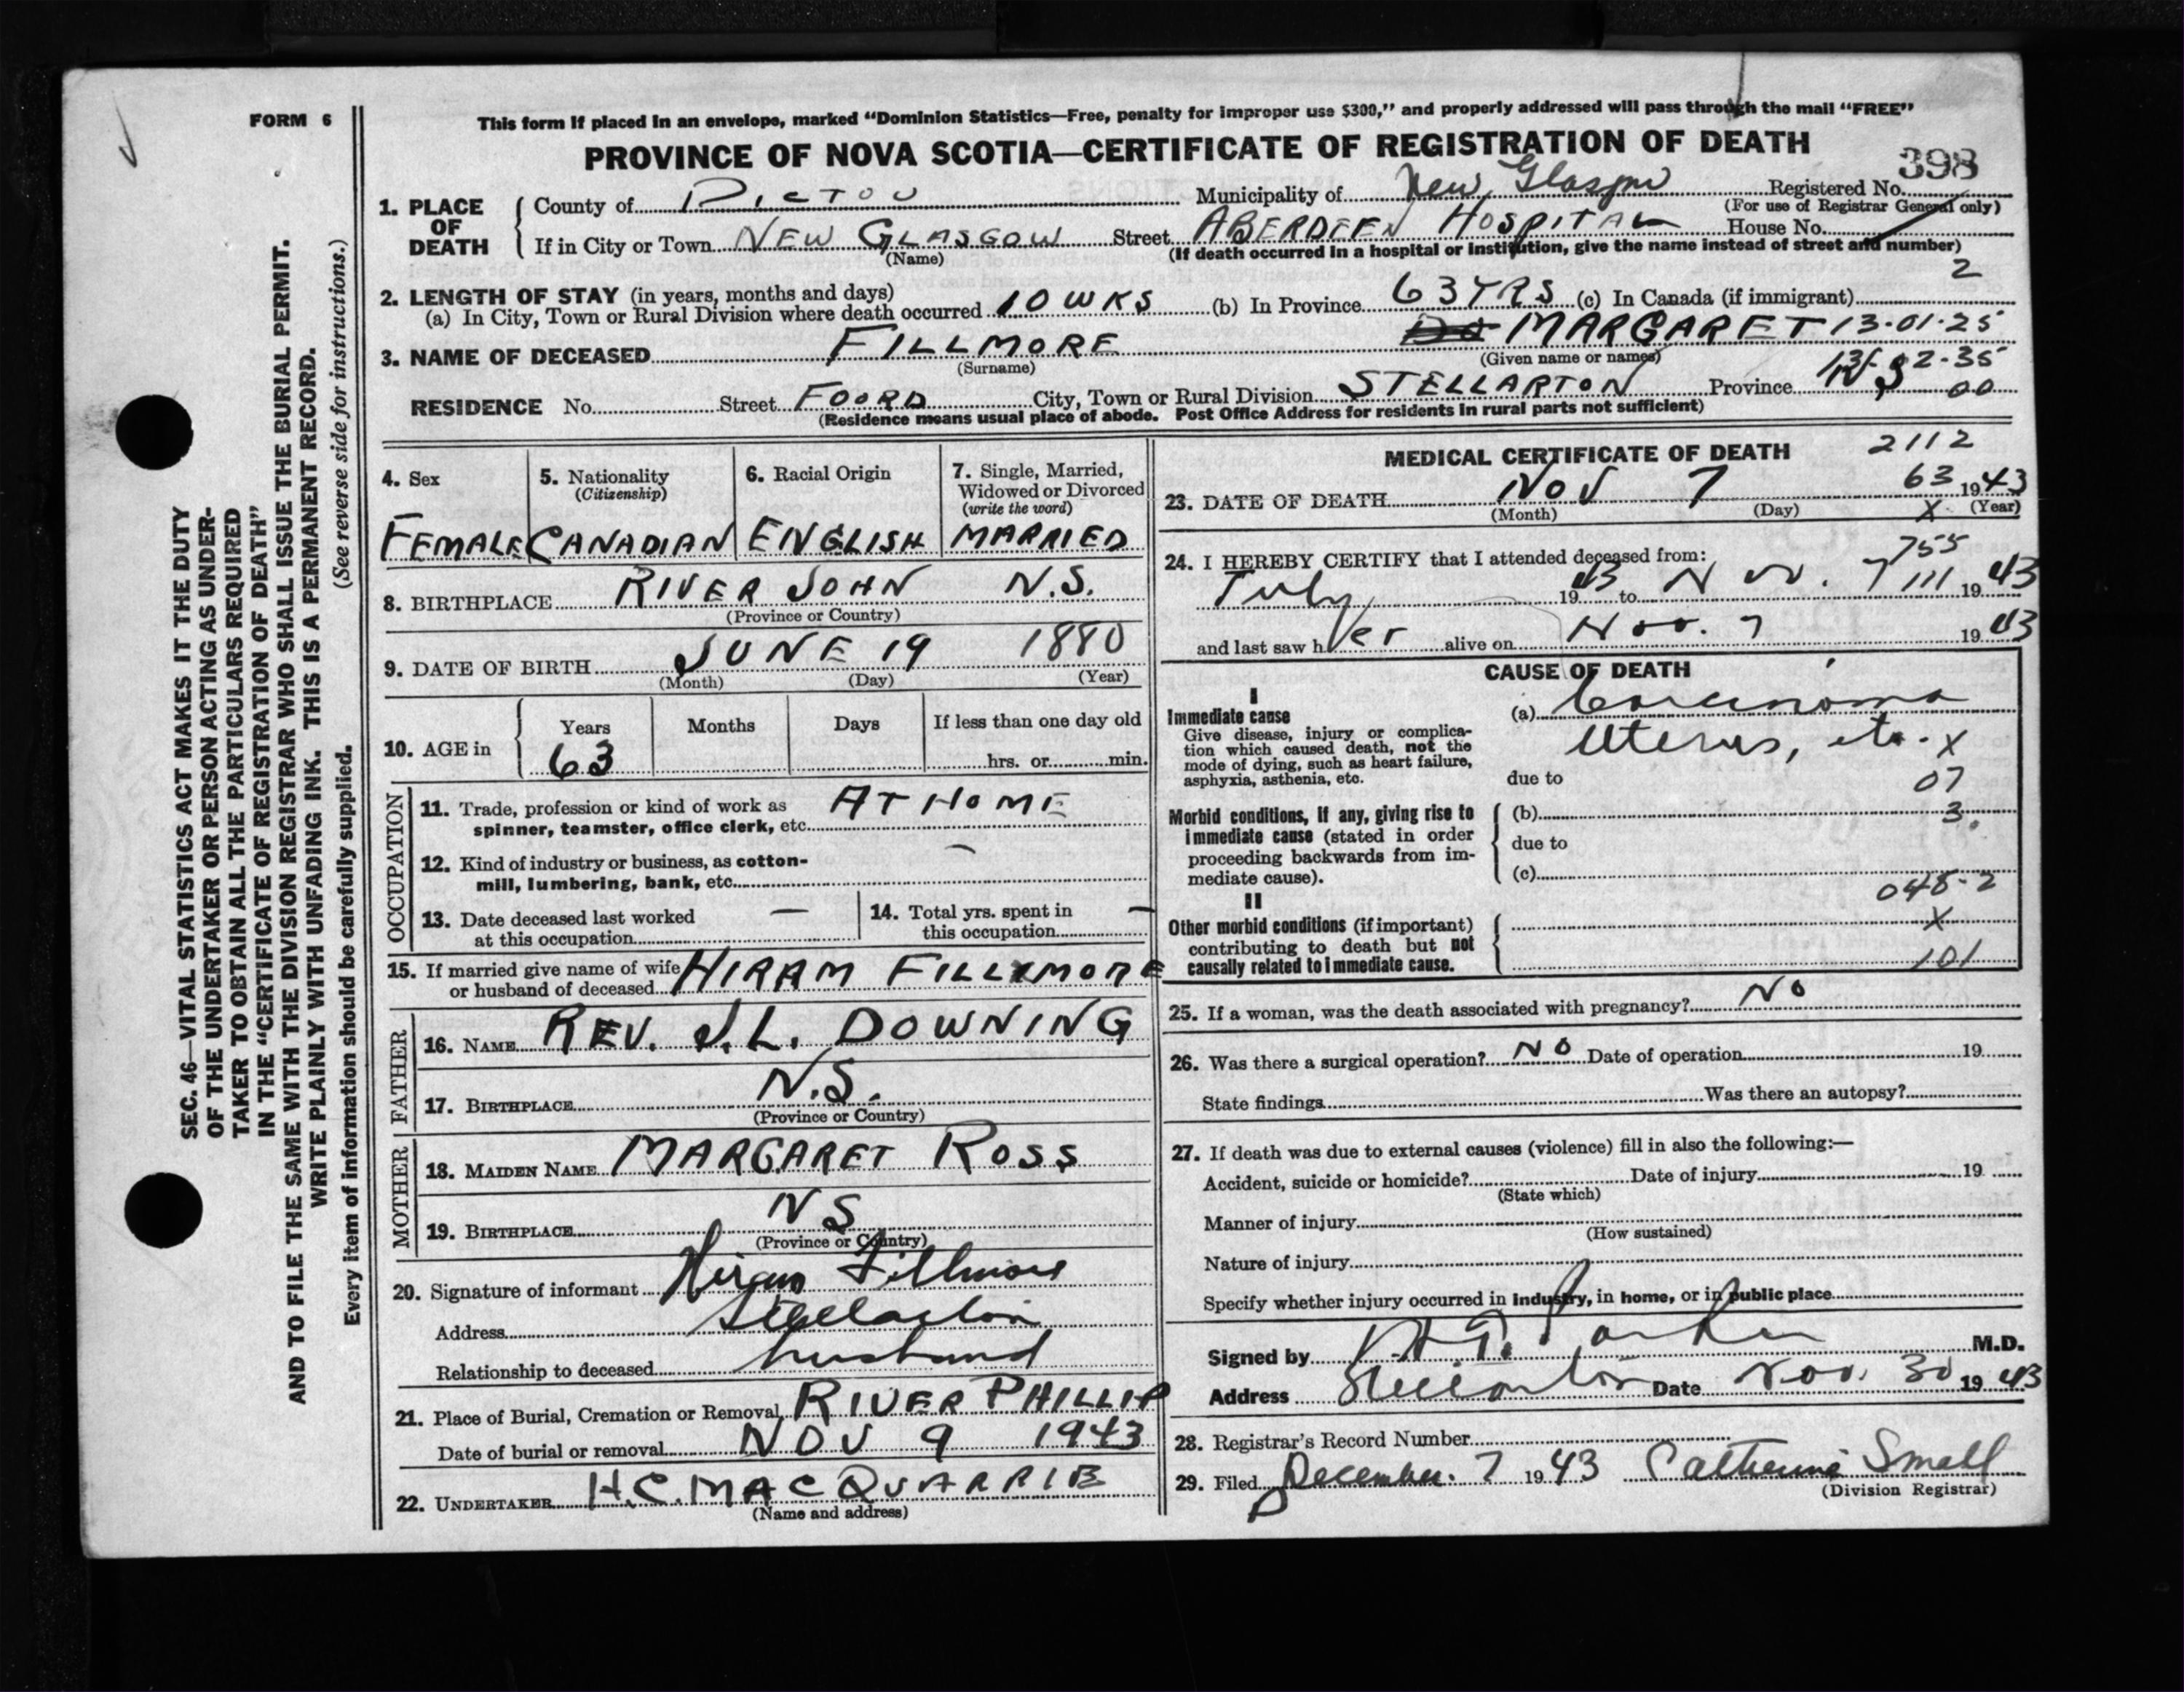 FORM 6
This form if placed in an envelope, marked “Dominion Statistics—Free, penalty for improper use $300,” and properly addressed will pass through the mail “FREE”
PROVINCE OF NOVA SCOTIA—CERTIFICATE OF REGISTRATION OF DEATH
398
1. PLACE OF DEATH
County of PICTOU Municipality of New Glasgow Registered No.
(For use of Registrar General only)
If in City or Town NEW GLASGOW Street ABERDEEN HOSPITAL House No.
(Name) (If death occurred in a hospital or institution, give the name instead of street and number)
2
2. LENGTH OF STAY (in years, months and days)
(a) In City, Town or Rural Division where death occurred 10 WKS (b) In Province 63 YRS (c) In Canada (if immigrant)
3. NAME OF DECEASED FILLMORE MARGARET 13-01-25
(Surname) (Given name or names)
RESIDENCE No. Street FOORD City, Town or Rural Division STELLARTON Province N.S 2-35
00
(Residence means usual place of abode. Post Office Address for residents in rural parts not sufficient)
4. Sex 5. Nationality (Citizenship) 6. Racial Origin 7. Single, Married, Widowed or Divorced (write the word)
FEMALE CANADIAN ENGLISH MARRIED
8. BIRTHPLACE RIVER JOHN N.S.
(Province or Country)
9. DATE OF BIRTH JUNE 19 1880
(Month) (Day) (Year)
10. AGE in Years Months Days If less than one day old
63 hrs. or min.
OCCUPATION
11. Trade, profession or kind of work as spinner, teamster, office clerk, etc. AT HOME
12. Kind of industry or business, as cotton-mill, lumbering, bank, etc. —
13. Date deceased last worked at this occupation —
14. Total yrs. spent in this occupation —
15. If married give name of wife or husband of deceased HIRAM FILLMORE
FATHER
16. NAME REV. J.L. DOWNING
17. BIRTHPLACE N.S.
(Province or Country)
MOTHER
18. MAIDEN NAME MARGARET ROSS
19. BIRTHPLACE NS
(Province or Country)
20. Signature of informant Hiram Fillmore
Address Stellarton
Relationship to deceased husband
21. Place of Burial, Cremation or Removal RIVER PHILLIP
Date of burial or removal NOV 9 1943
22. UNDERTAKER H.C. MACQUARRIE
(Name and address)
MEDICAL CERTIFICATE OF DEATH 2112
23. DATE OF DEATH NOV 7 63 1943
(Month) (Day) X (Year)
755
24. I HEREBY CERTIFY that I attended deceased from:
July 1943 to Nov. 7 111 1943
and last saw her alive on Nov. 7 1943
CAUSE OF DEATH
I
Immediate cause
Give disease, injury or complication which caused death, not the mode of dying, such as heart failure, asphyxia, asthenia, etc.
(a) Carcinoma
Uterus, etc. X
due to 07
Morbid conditions, if any, giving rise to immediate cause (stated in order proceeding backwards from immediate cause).
(b) 3.
due to
(c)
048-2
II
Other morbid conditions (if important) contributing to death but not causally related to immediate cause.
X
101
25. If a woman, was the death associated with pregnancy? NO
26. Was there a surgical operation? NO Date of operation 19
State findings Was there an autopsy?
27. If death was due to external causes (violence) fill in also the following:—
Accident, suicide or homicide? Date of injury 19
(State which)
Manner of injury
(How sustained)
Nature of injury
Specify whether injury occurred in industry, in home, or in public place
Signed by Parker M.D.
Address Stellarton Date Nov. 30 1943
28. Registrar's Record Number
29. Filed December 7 1943 Catherine Small
(Division Registrar)
SEC. 46—VITAL STATISTICS ACT MAKES IT THE DUTY
OF THE UNDERTAKER OR PERSON ACTING AS UNDER-
TAKER TO OBTAIN ALL THE PARTICULARS REQUIRED
IN THE “CERTIFICATE OF REGISTRATION OF DEATH”
AND TO FILE THE SAME WITH THE DIVISION REGISTRAR WHO SHALL ISSUE THE BURIAL PERMIT.
WRITE PLAINLY WITH UNFADING INK. THIS IS A PERMANENT RECORD.
Every item of information should be carefully supplied. (See reverse side for instructions.)